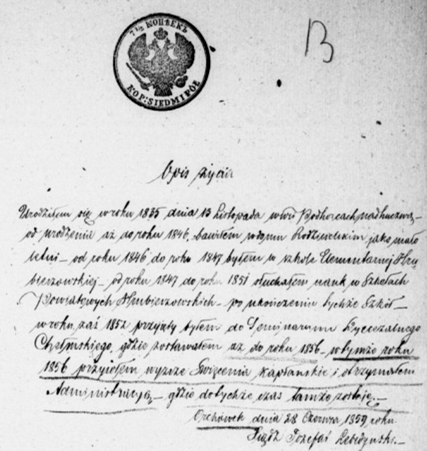 7½ КОПѢЕКЪ
KOP: SIEDM I PÓŁ
13
Opis życia
Urodziłem się w roku 1835 dnia 13 Listopada w wsi Podhorcach
od urodzenia aż do roku 1846, bawiłem w domu Rodzicielskim jako mało
letni – od roku 1846 do roku 1847 byłem w szkole Elementarnej Hru
bieszowskiej – od roku 1847 do rok 1851 słuchałem nauk w Szkołach
Powiatowych Hrubieszowskich – po ukończeniu tychże Szkół –
w roku zaś 1852 przyięty byłem do Seminarium Dyecezalnego
Chełmskiego, gdzie zostawałem aż do roku 1856 w tymże roku
1856 przyiołem wyzsze Święcenia kapłańskie i otrzymałem
Administracyą – gdzie dotychczas tamże zostaię. –
Orchówek dnia 28 Czerwca 1859 roku
Xiądz Józefat